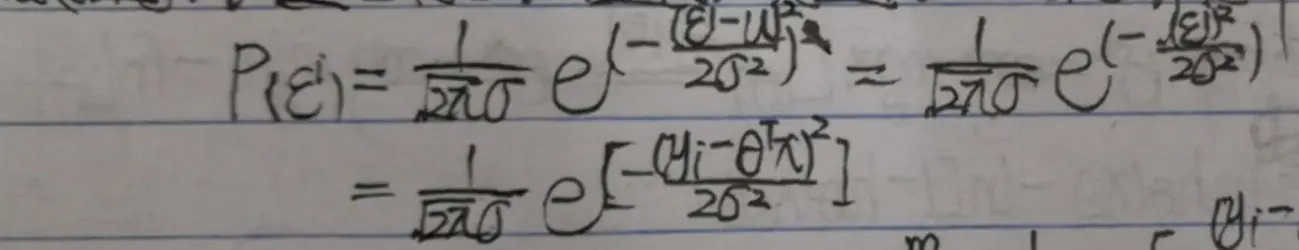 P(ε^i) = \frac{1}{\sqrt{2π}σ} e^{(-\frac{(ε^i-u)^2}{2σ^2})} = \frac{1}{\sqrt{2π}σ} e^{(-\frac{(ε^i)^2}{2σ^2})}
= \frac{1}{\sqrt{2π}σ} e^{[-\frac{(y_i-θ^Tx)^2}{2σ^2}]}
(y_i-